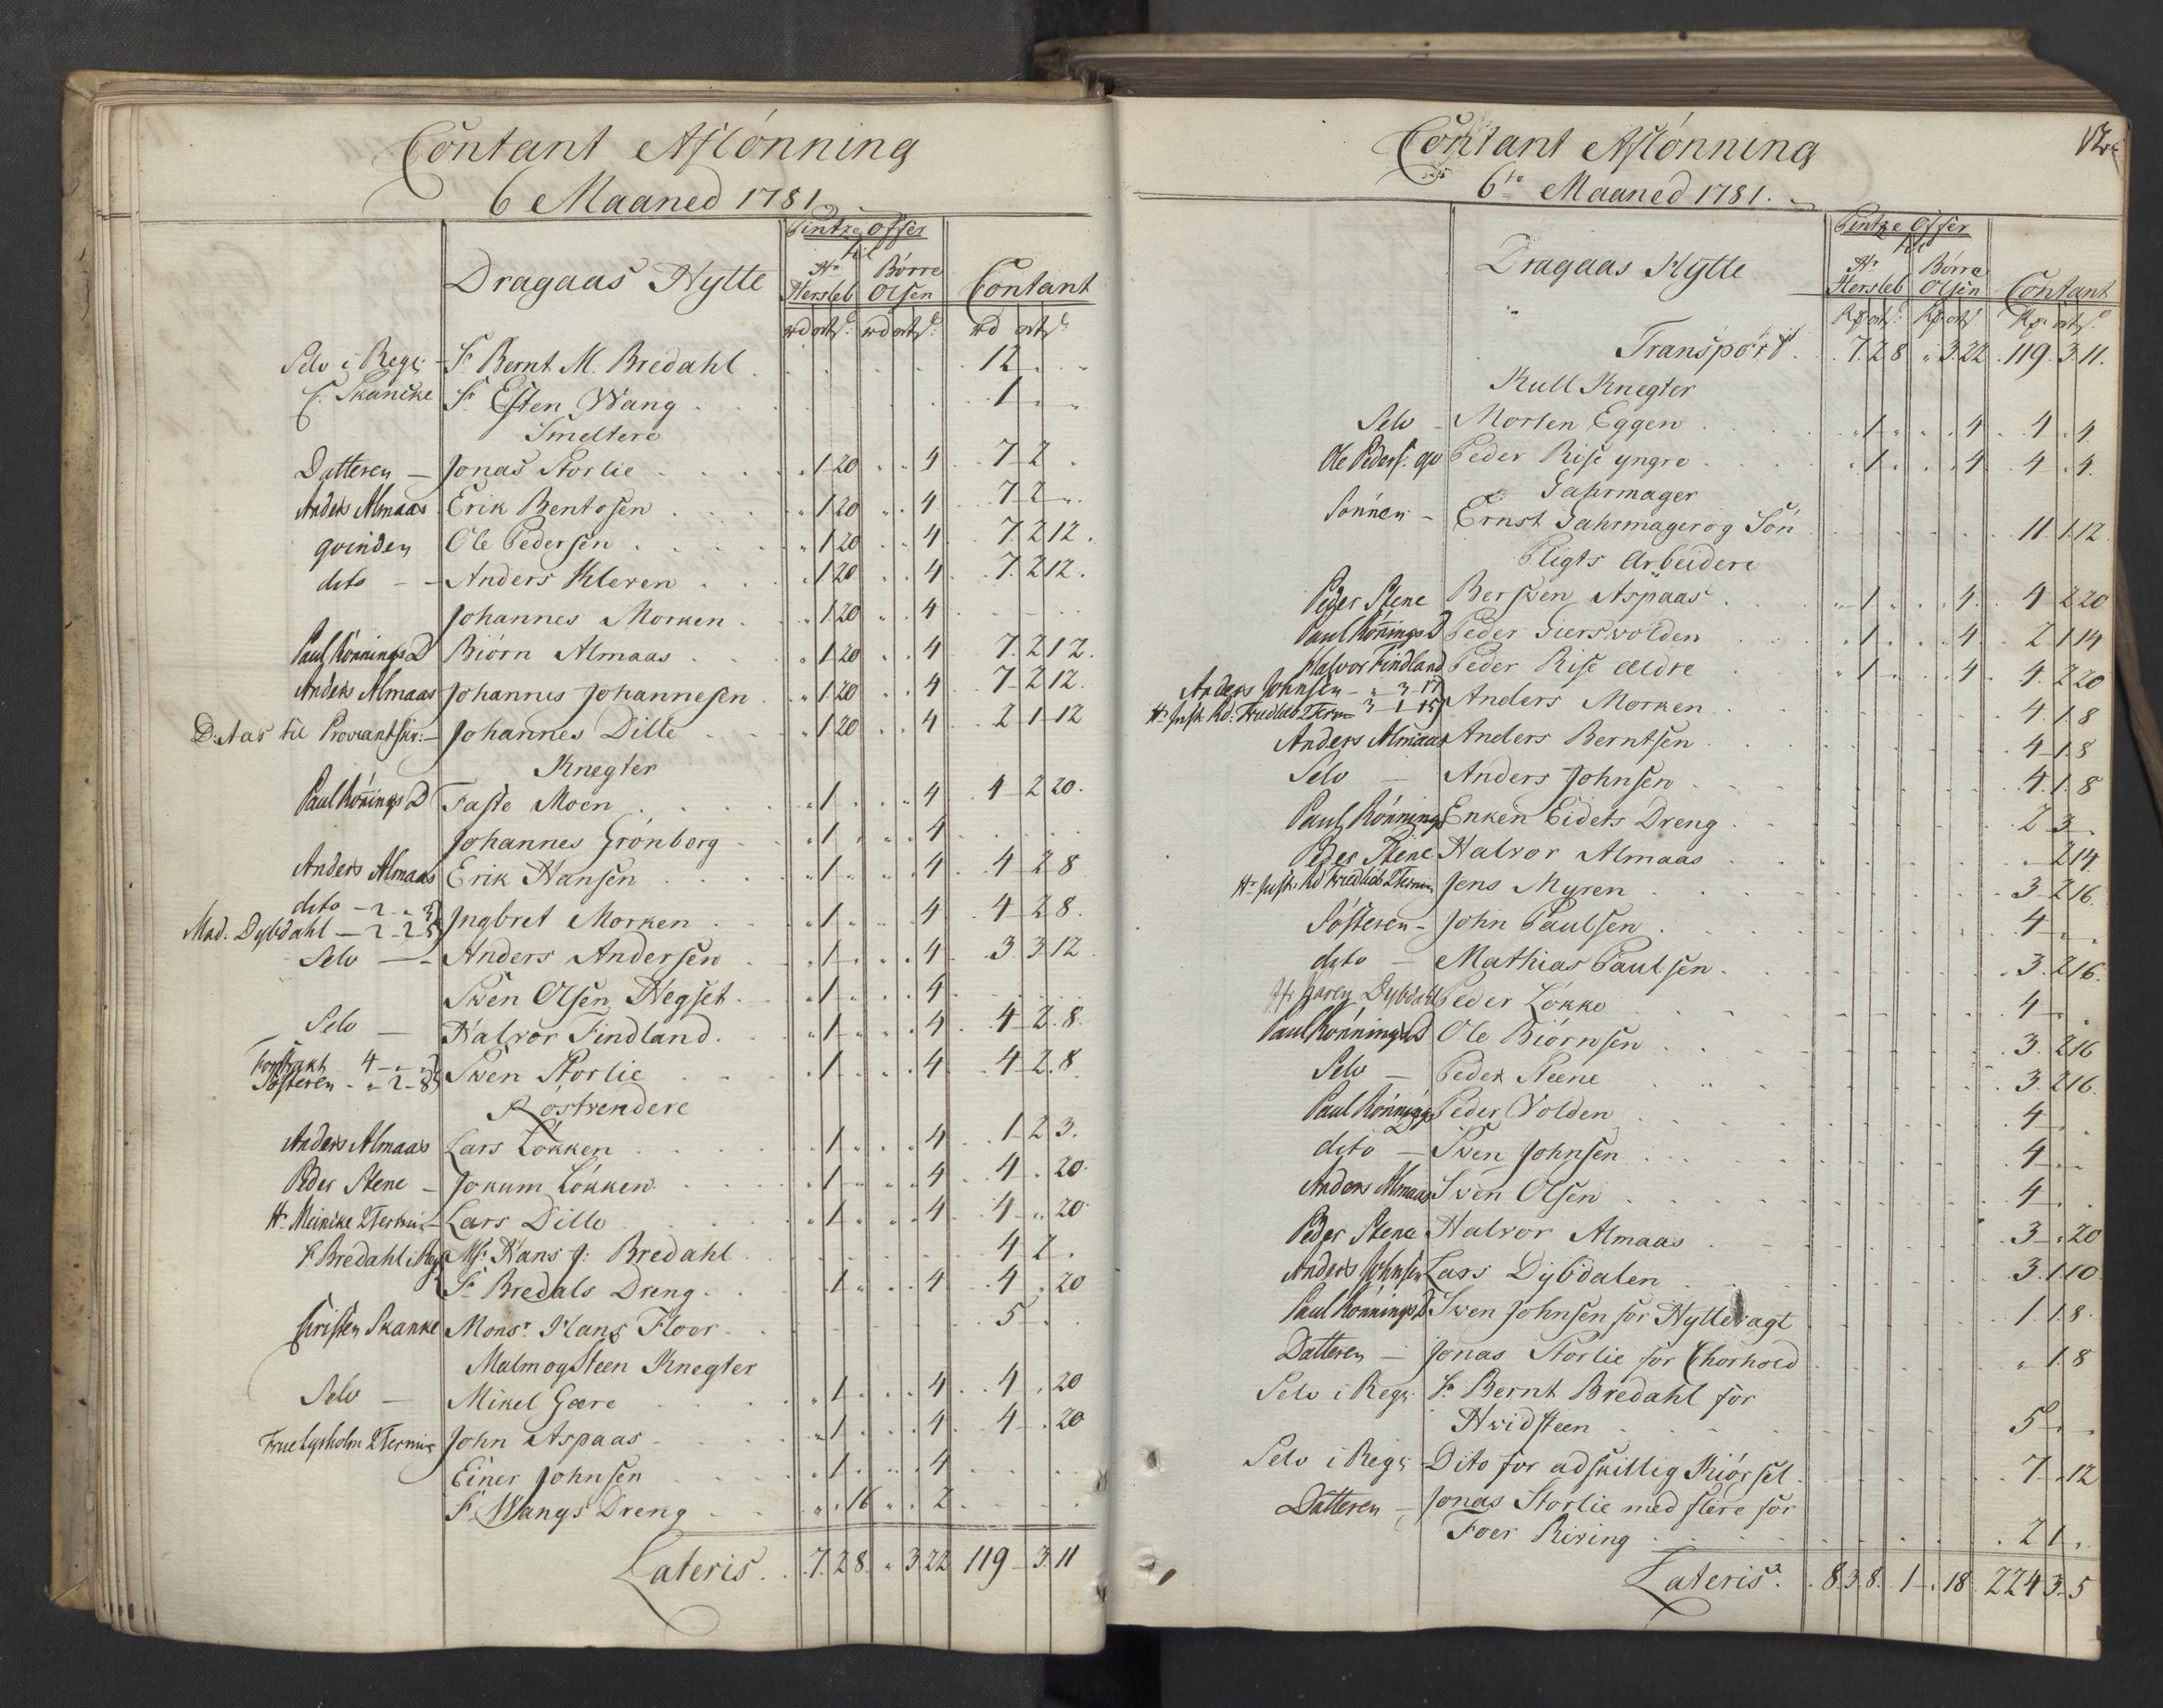 Contant Aflónning
6 Maaned 1781.
Pintze offer
til
Hr Bórre
Dragaas Hytte Hersleb Olsen Contant
rd ort s: rd ort s: rd ort s:
Selv i Regn: Sr Bernt M. Bredahl 12
C. Skancke Sr Esten Wang 1
Smeltere
Datteren — Jonas Storlie 1 20 4 7 2
Anders Almaas Erik Bentosen 1 20 4 7 2
qvinden Ole Pedersen 1 20 4 7 2 12
dito — Anders Kleven 1 20 4 7 2 12
Johannes Morken 1 20 4
Paul Rónnings D Biórn Almaas 1 20 4 7 2 12
Anders Almaas Johannes Johannesen 1 20 4 7 2 12
D: Aas til Proviantskr: — Johannes Dille 1 20 4 2 1 12
Knegter
Paul Rónnings D Faste Moen 1 4 4 2 20
Johannes Grónborg 1 4
Anders Almaas Erik Hansen 1 4 4 2 8
dito — 2 „ 3
Mad. Dybdahl — 2 2 5 Ingbret Morken 1 4 4 2 8
Selv — Anders Andersen 1 4 3 3 12
Swen Olsen Hegset 1 4
Selv — Halvor Findland 1 4 4 2 8
4
Sósteren - „ 2 - 8 Swen Storlie 1 4 4 2 8
Róstvendere
Anders Almaas Lars Lókken 1 4 1 2 3
Peder Stene — Jokum Lókken 1 4 4 „ 20
Hr Meincke 2 Termin — Lars Dille 1 4 4 „ 20
Sr Bredahl i Regn Msr Hans J: Bredahl 4 2
Sr Bredals Dreng 1 4 4 „ 20
Christen Skanke Monsr Hans Floor 5
Malm og Steen Knegter
Selv — Mikel Gare 1 4 4 „ 20
Frue Lysholm 2 Termin John Aspaas 1 4 4 „ 20
Einer Johnsen 1 4
Sr Wangs Dreng „ 16 2
Lateris 7 2 8 „ 3 22 119 3 11
Contant Aflónning
6te Maaned 1781.
Pintze Offer
til
Hr Bórre
Dragaas Hytte Hersleb Olsen Contant
Rd ort s: Rd ort s: Rd ort s:
Transport 7 2 8 „ 3 22 119 3 11
Kull Knegter
Selv — Morten Eggen 1 4 4 „ 4
Ole Peders: qv Peder Rise yngre 1 4 4 „ 4
Gahrmager
Sónnen — Ernst Gahrmager og Són 11 1 12
Pligts Arbeidere
Peder Stene Berswen Aspaas 1 4 4 2 20
Paul Rónnings D Peder Gierswolden 1 4 2 1 14
Halvor Findland Peder Rise ældre 1 4 4 2 20
Anders Johnsen — „ 3 17
Hr Just: Rd: Friedlieb 2 Term 3 1 15 Anders Morken 4 1 8
Anders Almaas Anders Berntsen 4 1 8
Selv — Anders Johnsen 4 1 8
Paul Rónnings Enken Eidets Dreng 2 3
Peder Stene Halvor Almaas „ 2 14
Hr Just: Rd Friedlieb 2 Termin Jens Myren 3 2 16
Sósteren — John Paulsen 4
dito — Mathias Paulsen 3 2 16
Dybdahl Peder Lókke 4
Paul Rónnings D Ole Biórnsen 3 2 16
Selv — Peder Steene 3 2 16
Paul Rónnings D Peder Volden 4
dito — Swen Johnsen 4
Anders Almaas Swen Olsen 4
Peder Stene Halvor Almaas 3 „ 20
Anders Johnsen Lars Dybdalen 3 1 10
Paul Rónnings D Swen Johnsen for Hyttevagt 1 1 8
Datteren — Jonas Storlie for Chorhold „ 1 8
Selv i Regn: Sr Bernt Bredahl for
Hvidsteen 5
Selv i Regn Dito for adskillig Kiórsel 7 „ 12
Datteren — Jonas Storlie med flere for
Foer Riving 2 1
Lateris 8 3 8 1 „ 18 224 3 5